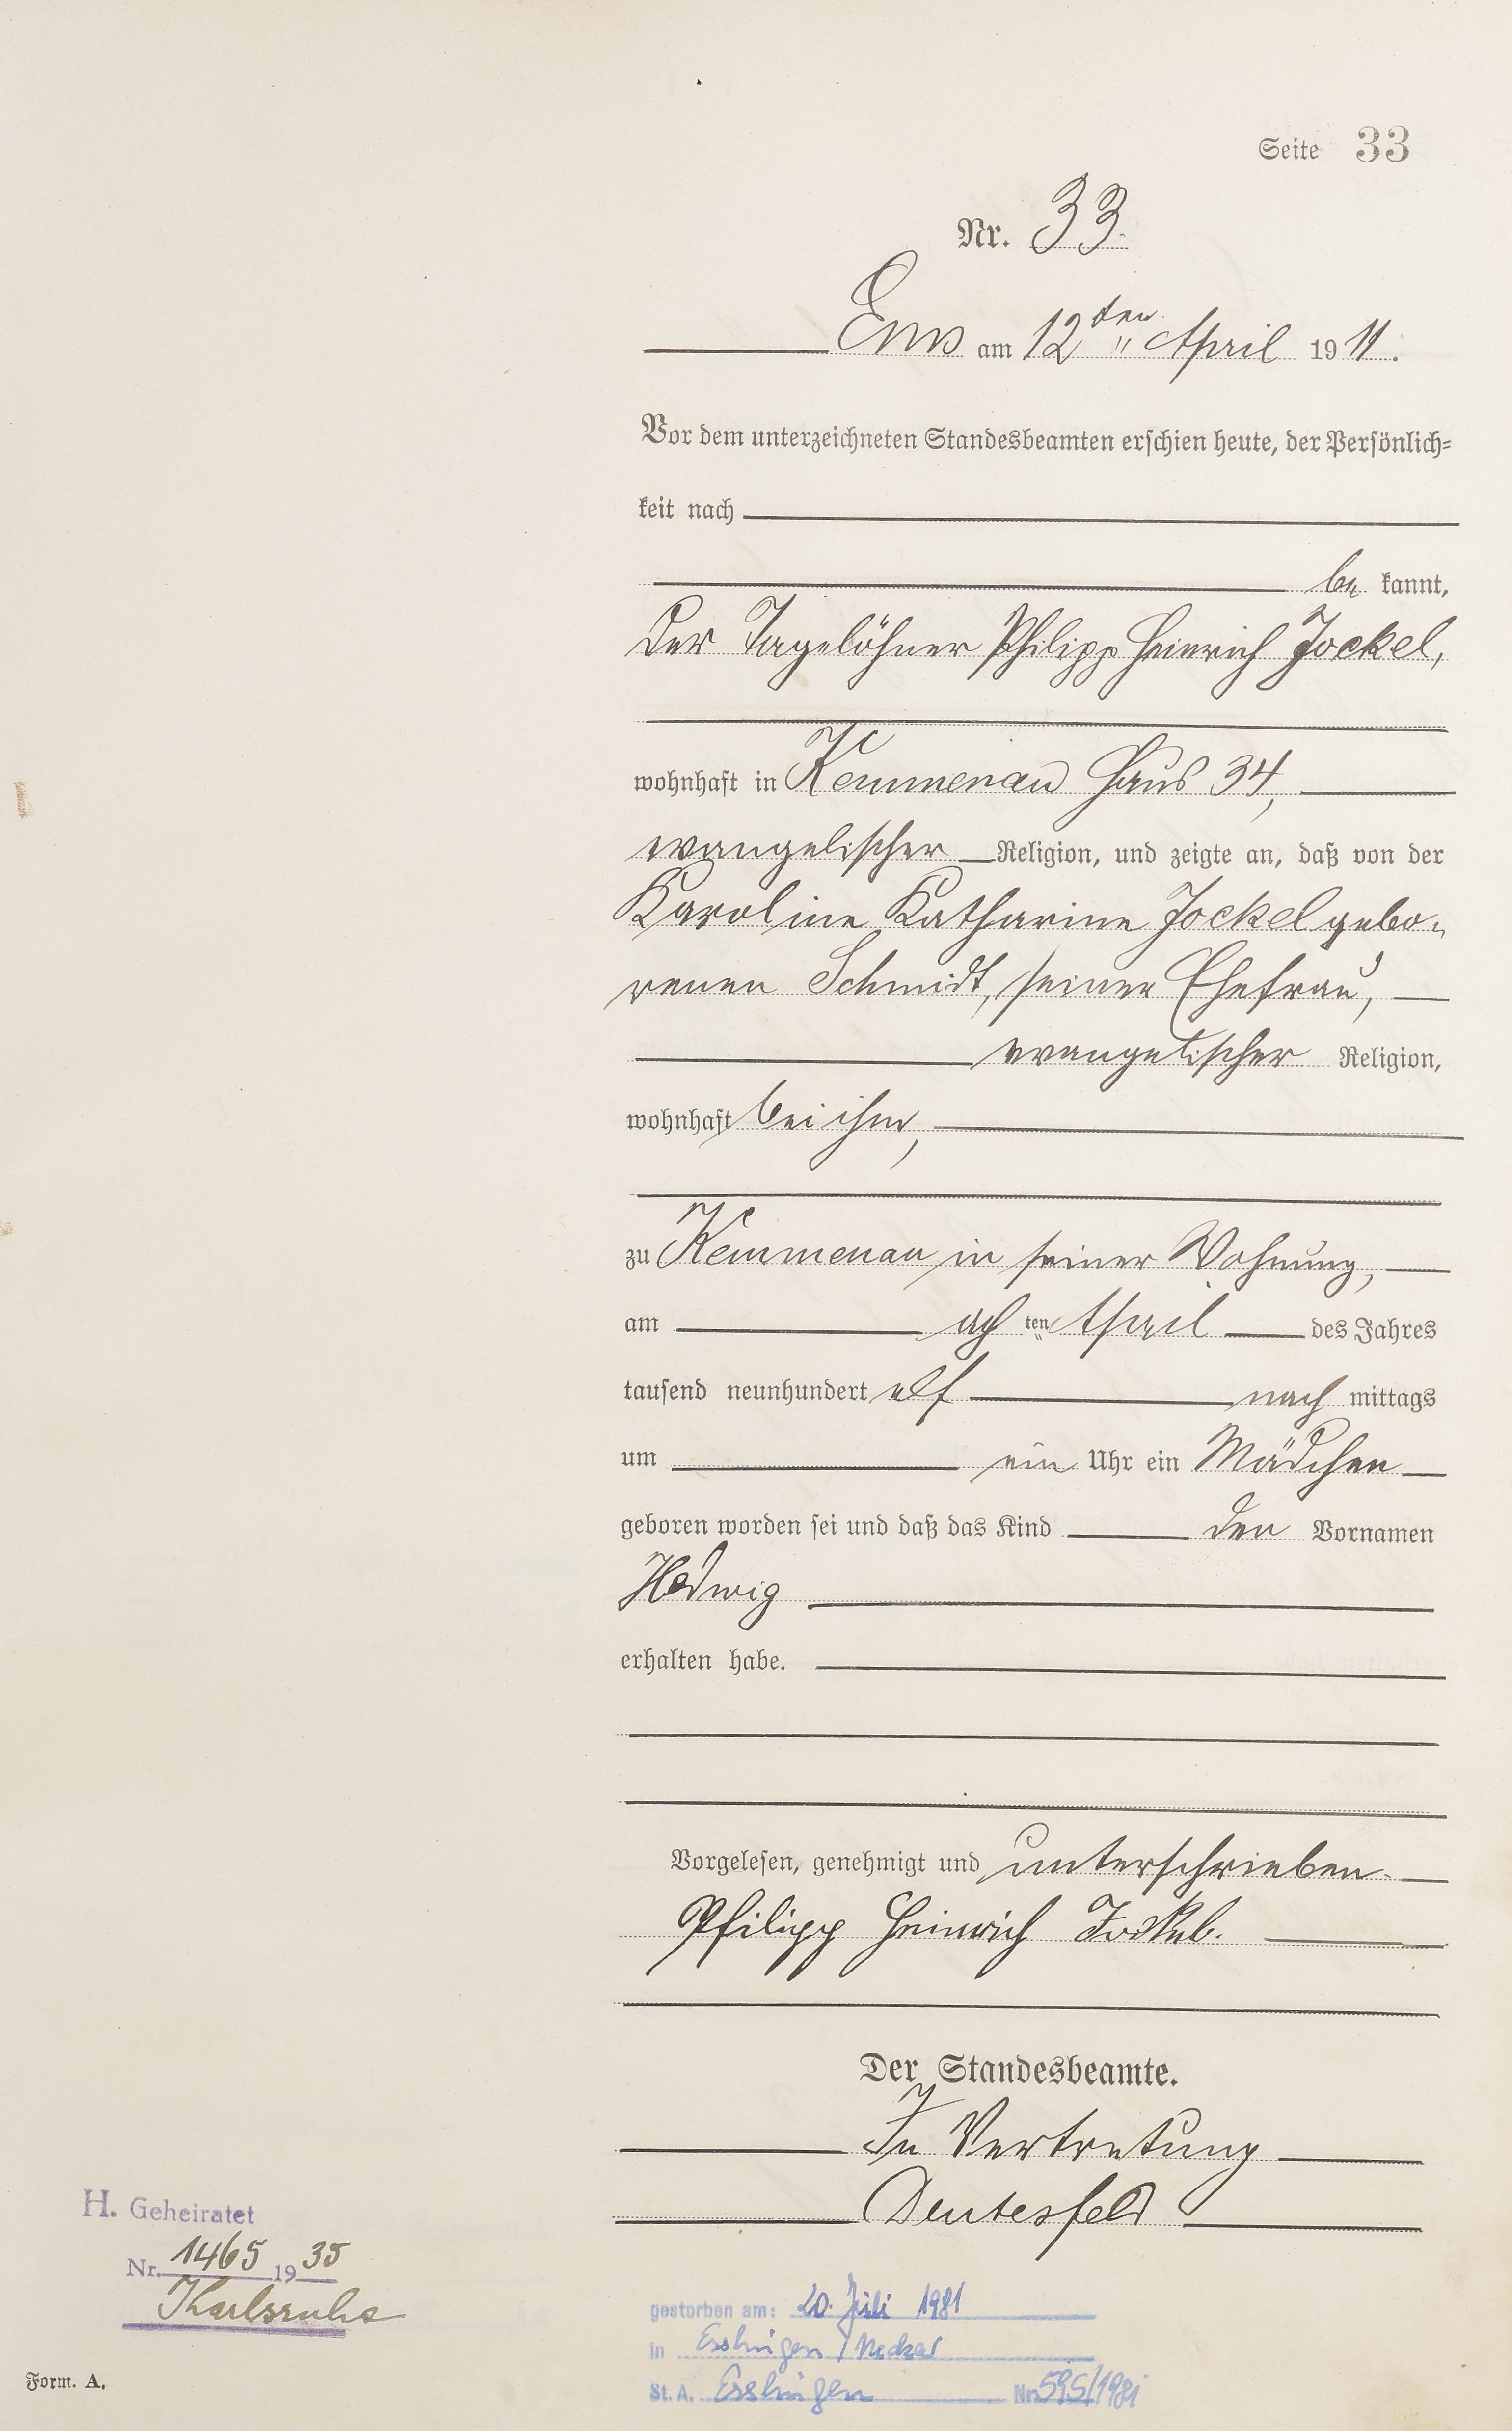 Seite 33
Nr. 33.
Ems am 12ten April 1911.
Vor dem unterzeichneten Standesbeamten erschien heute, der Persönlich-
keit nach
be kannt,
der Tagelöhner Philipp Heinrich Jockel,
wohnhaft in Kemmenau Haus 34,
evangelischer Religion, und zeigte an, daß von der
Karoline Katharine Jockel gebo-
renen Schmidt, seiner Ehefrau,
evangelischer Religion,
wohnhaft bei ihm,
zu Kemmenau in seiner Wohnung,
am ach ten April des Jahres
tausend neunhundert elf nach mittags
um ein Uhr ein Mädchen
geboren worden sei und daß das Kind den Vornamen
Hedwig
erhalten habe.
Vorgelesen, genehmigt und unterschrieben.
Philipp Heinrich Jockel.
Der Standesbeamte.
In Vertretung
Deutesfeld
H. Geheiratet
Nr. 1465 1935
Karlsruhe
gestorben am: 20. Juli 1981
in Esslingen / Neckar
St. A. Esslingen Nr. 595/1981
Form. A.